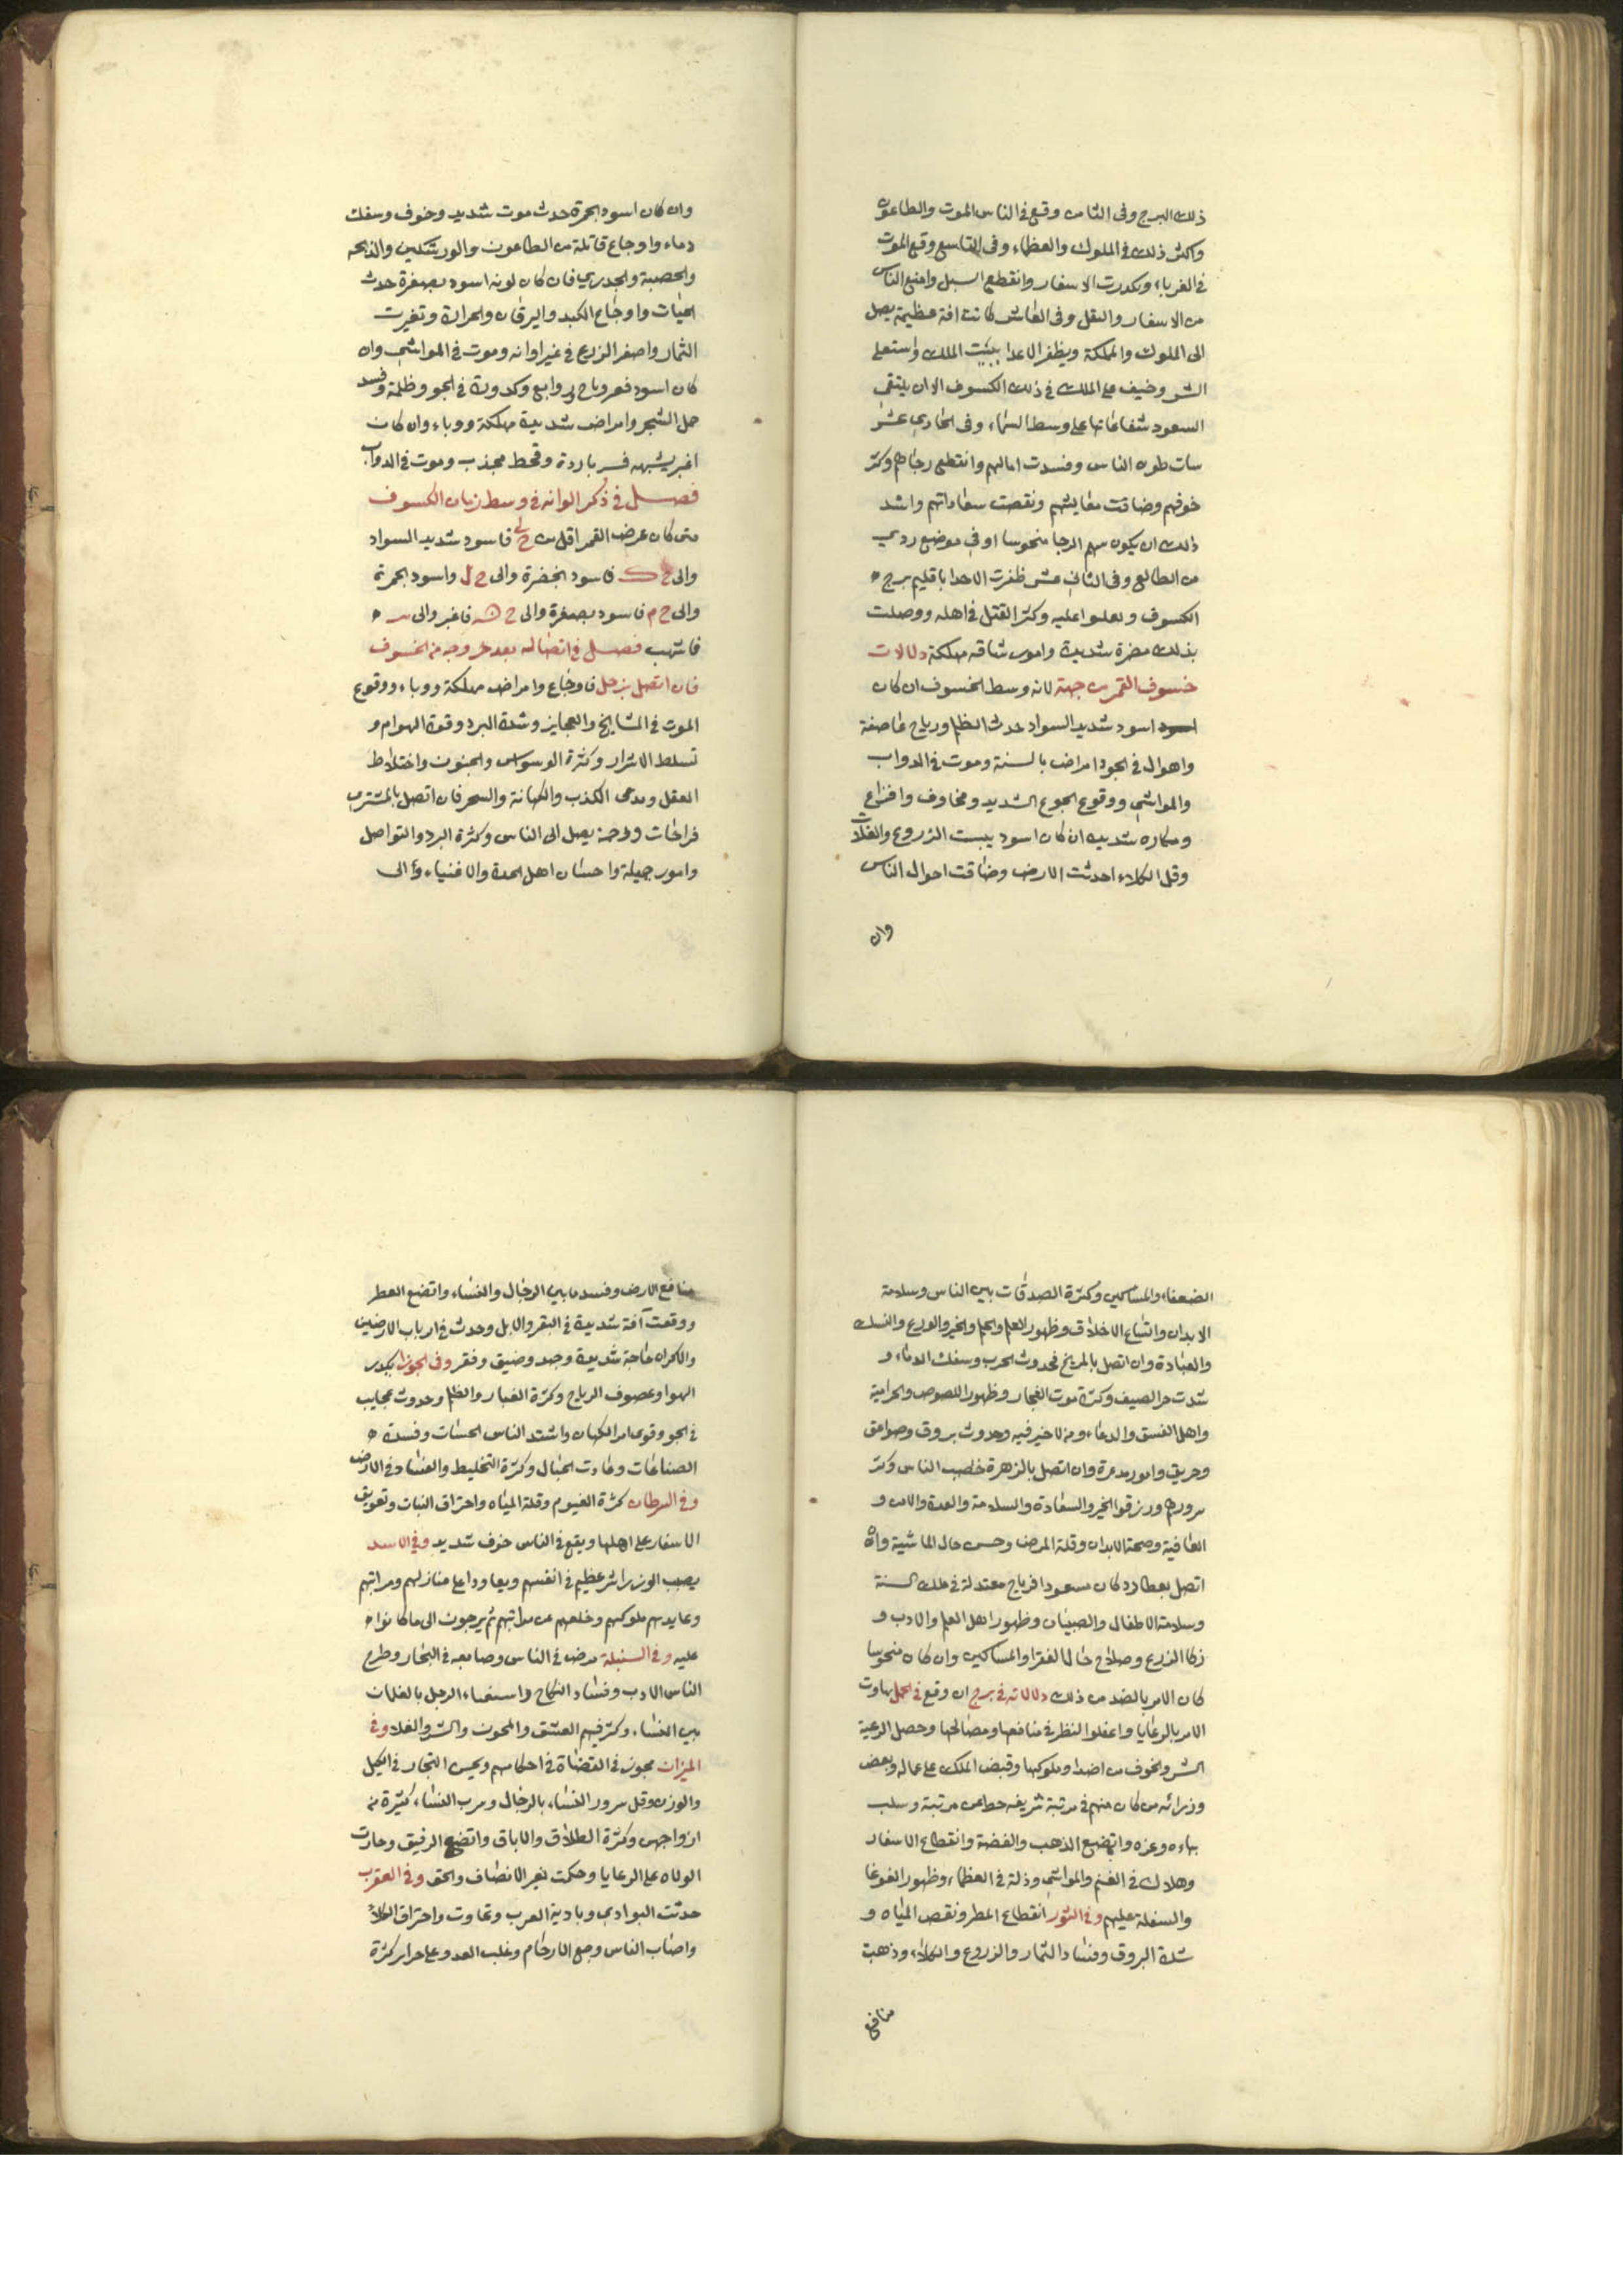 ذلك البرج وفى الثامن وقع فى الناس الموت والطاعون
واكثر ذلك فى الملوك والعظماء وفى التاسع وقع الموت
فى الغرباء وتكدرت الاسفار وانقطع السبل وامتنع الناس
من الاسفار والنقل وفى العاشر كانت افة عظيمة يصل
الى الملوك والمملكة ويظفر الاعدا ببيت الملك واستعلى
الشر وخيف على الملك فى ذلك الكسوف الا ان يلتقى
السعود شعاعاتها على وسط السماء وفى الحادى عشر
سات ظنون الناس وفسدت امالهم وانقطع رجاهم وكثر
خوفهم وضاقت معايشهم ونقصت سعاداتهم واشد
ذلك ان يكون سهم الرجا منحوسا او فى موضع ردى
من الطالع وفى الثانى عشر ظفرت الاعدا باقليم برج
الكسوف وعلوا عليه وكثر القتل فى اهله ووصلت
بذلك مضرة شديدة وامور شاقه مهلكة دلالات
خسوف القمر من جهة لانه وسط الخسوف ان كان
اسود اسود شديد السواد حدث الظلم ورياح عاصفة
واهوال فى الجو وامراض بالسنة وموت فى الدواب
والمواشى ووقوع الجوع الشديد ومخاوف وافزاع
ومكاره شديده ان كان اسود يبست الزروع والغلات
وقل الكلاء احدثت الارض وضاقت احوال الناس
وان
وان كان اسود بحمرة حدث موت شديد وخوف وسفك
دماء واوجاع قاتلة من الطاعون والورشكين والذبحه
والحصبة والجدرى فان كان لونه اسود بصفرة حدث
الحيات واوجاع الكبد واليرقان والحرارة وتغيرت
الثمار واصفر الزرع فى غير اوانه وموت فى المواشى وان
كان اسود فعر وباح وروابع وكدورة فى الجو وظلمة وفسد
حمل الشجر وامراض شديدة مهلكة ووباء وان كان
اغبر يشبهه فسر باردة وقحط مجذب وموت فى الدواب
فصل فى ذكر الوانه فى وسط زمان الكسوف
متى كان عرض القمر اقل من ح ى فاسود شديد السواد
والى ح ك فاسود بخضرة والى ح ل واسود بحمرة
والى ح م فاسود بصفرة والى ح ن فاغبر والى س
فاشهب فصل فى اتصاله بعد خروجه من الخسوف
فان اتصل بزحل فاوجاع وامراض مهلكة ووباء ووقوع
الموت فى المشايخ والعجايز وشدة البرد وقوة الهوام و
تسلط الاشرار وكثرة الوسواس والجنون واختلاط
العقل ومدعى الكذب والكهانة والسحر فان اتصل بالمشترى
فراحات ورحمة يصل الى الناس وكثرة البرد والتواصل
وامور جميلة واحسان اهل الجدة والاغنياء الى
الضعفاء والمساكين وكثرة الصدقات بين الناس وسلامة
الابدان واتساع الاخلاق وظهور العلم والحلم والخير والورع والنسك
والعبادة وان اتصل بالمريخ فحدوث الحرب وسفك الدماء و
شدت حر الصيف وكثرة موت الفجار وظهور اللصوص والحرامية
واهل الفسق والدعاء ومن لا خير فيه وحدوث بروق وصواعق
وحريق وامور مدعرة وان اتصل بالزهرة خلصب الناس وكثر
سرورهم ورزقوا الخير والسعادة والسلامة والعدة والامن و
العافية وصحة الابدان وقلة المرض وحسن حال الماشية وان
اتصل بعطارد كان مسعودا فرياح معتدلة فى تلك السنة
وسلامة الاطفال والصبيان وظهور اهل العلم والادب و
زكا الزرع وصلاح حال الفقرا والمساكين وان كان منحوسا
كان الامر بالضد من ذلك دلالاته فى برج ان وقع فى الحمل تهاوت
الامر بالرعايا واغفلوا النظر فى منافعها ومصالحها وحصل الرعية
الشر والخوف من اضداد ملوكها وقبض الملك على عماله وبعض
وزرائه من كان منهم فى مرتبة شريفه حط من مرتبة وسلب
بهاءه وعزه واتضع الذهب والفضة وانقطاع الاسفار
وهلاك فى الغنم والمواشى وذلة فى العظماء وظهور الغوغا
والسفلة عليهم وفى الثور انقطاع المطر ونقص المياه و
شدة البروق وفساد الثمار والزروع والكلاء وذهبت
منافع
منافع الارض وفسد ما بين الرجال والنساء واتضع العطر
ووقعت آفة شديدة فى البقر والابل وحدث فى ارباب الارضين
والاكراه حاجة شديدة وجهد وضيق وفقر وفى الجوزا يكدر
الهوا وعصوف الرياح وكثرة الغبار والظلم وحدوث عجايب
فى الجو وقوى امر الكهان واشتد الناس الحسنات وفسدة
الصناعات وعادت الحبال وكثرة التخليط والفساد فى الارض
وفى السرطان كثرة الغيوم وقلة المياه واحتراق النبات وتعويق
الاسفار على اهلها ويقع فى الناس خوف شديد وفى الاسد
يصب الوزرا شر عظيم فى انفسهم ويعاودا على منازلهم ومراتبهم
وعايدهم ملوكهم وخلعهم من مراتبهم ثم يرجون الى ما كانوا
عليه وفى السنبلة مرض فى الناس وصابعه فى التجار وطرح
الناس الادب وفساد النكاح واستغناء الرجل بالغلمان
بين النساء وكثر فيهم العشق والمجون والشر والغلا وفى
الميزان يجوز فى القضاة فى احكامهم وبخس التجار فى الكيل
والوزن وقل سرور النساء بالرجال وهرب النساء كثيرة من
ازواجهن وكثرة الطلاق والاباق واتضع الرقيق وجارت
الولاه على الرعايا وحكمت بغير الانصاف والحق وفى العقرب
حدثت البوادى وبادية العرب وتماوت واحتراق الكلاء
واصاب الناس وجع الارحام وغلب العدو على حرابر كثرة